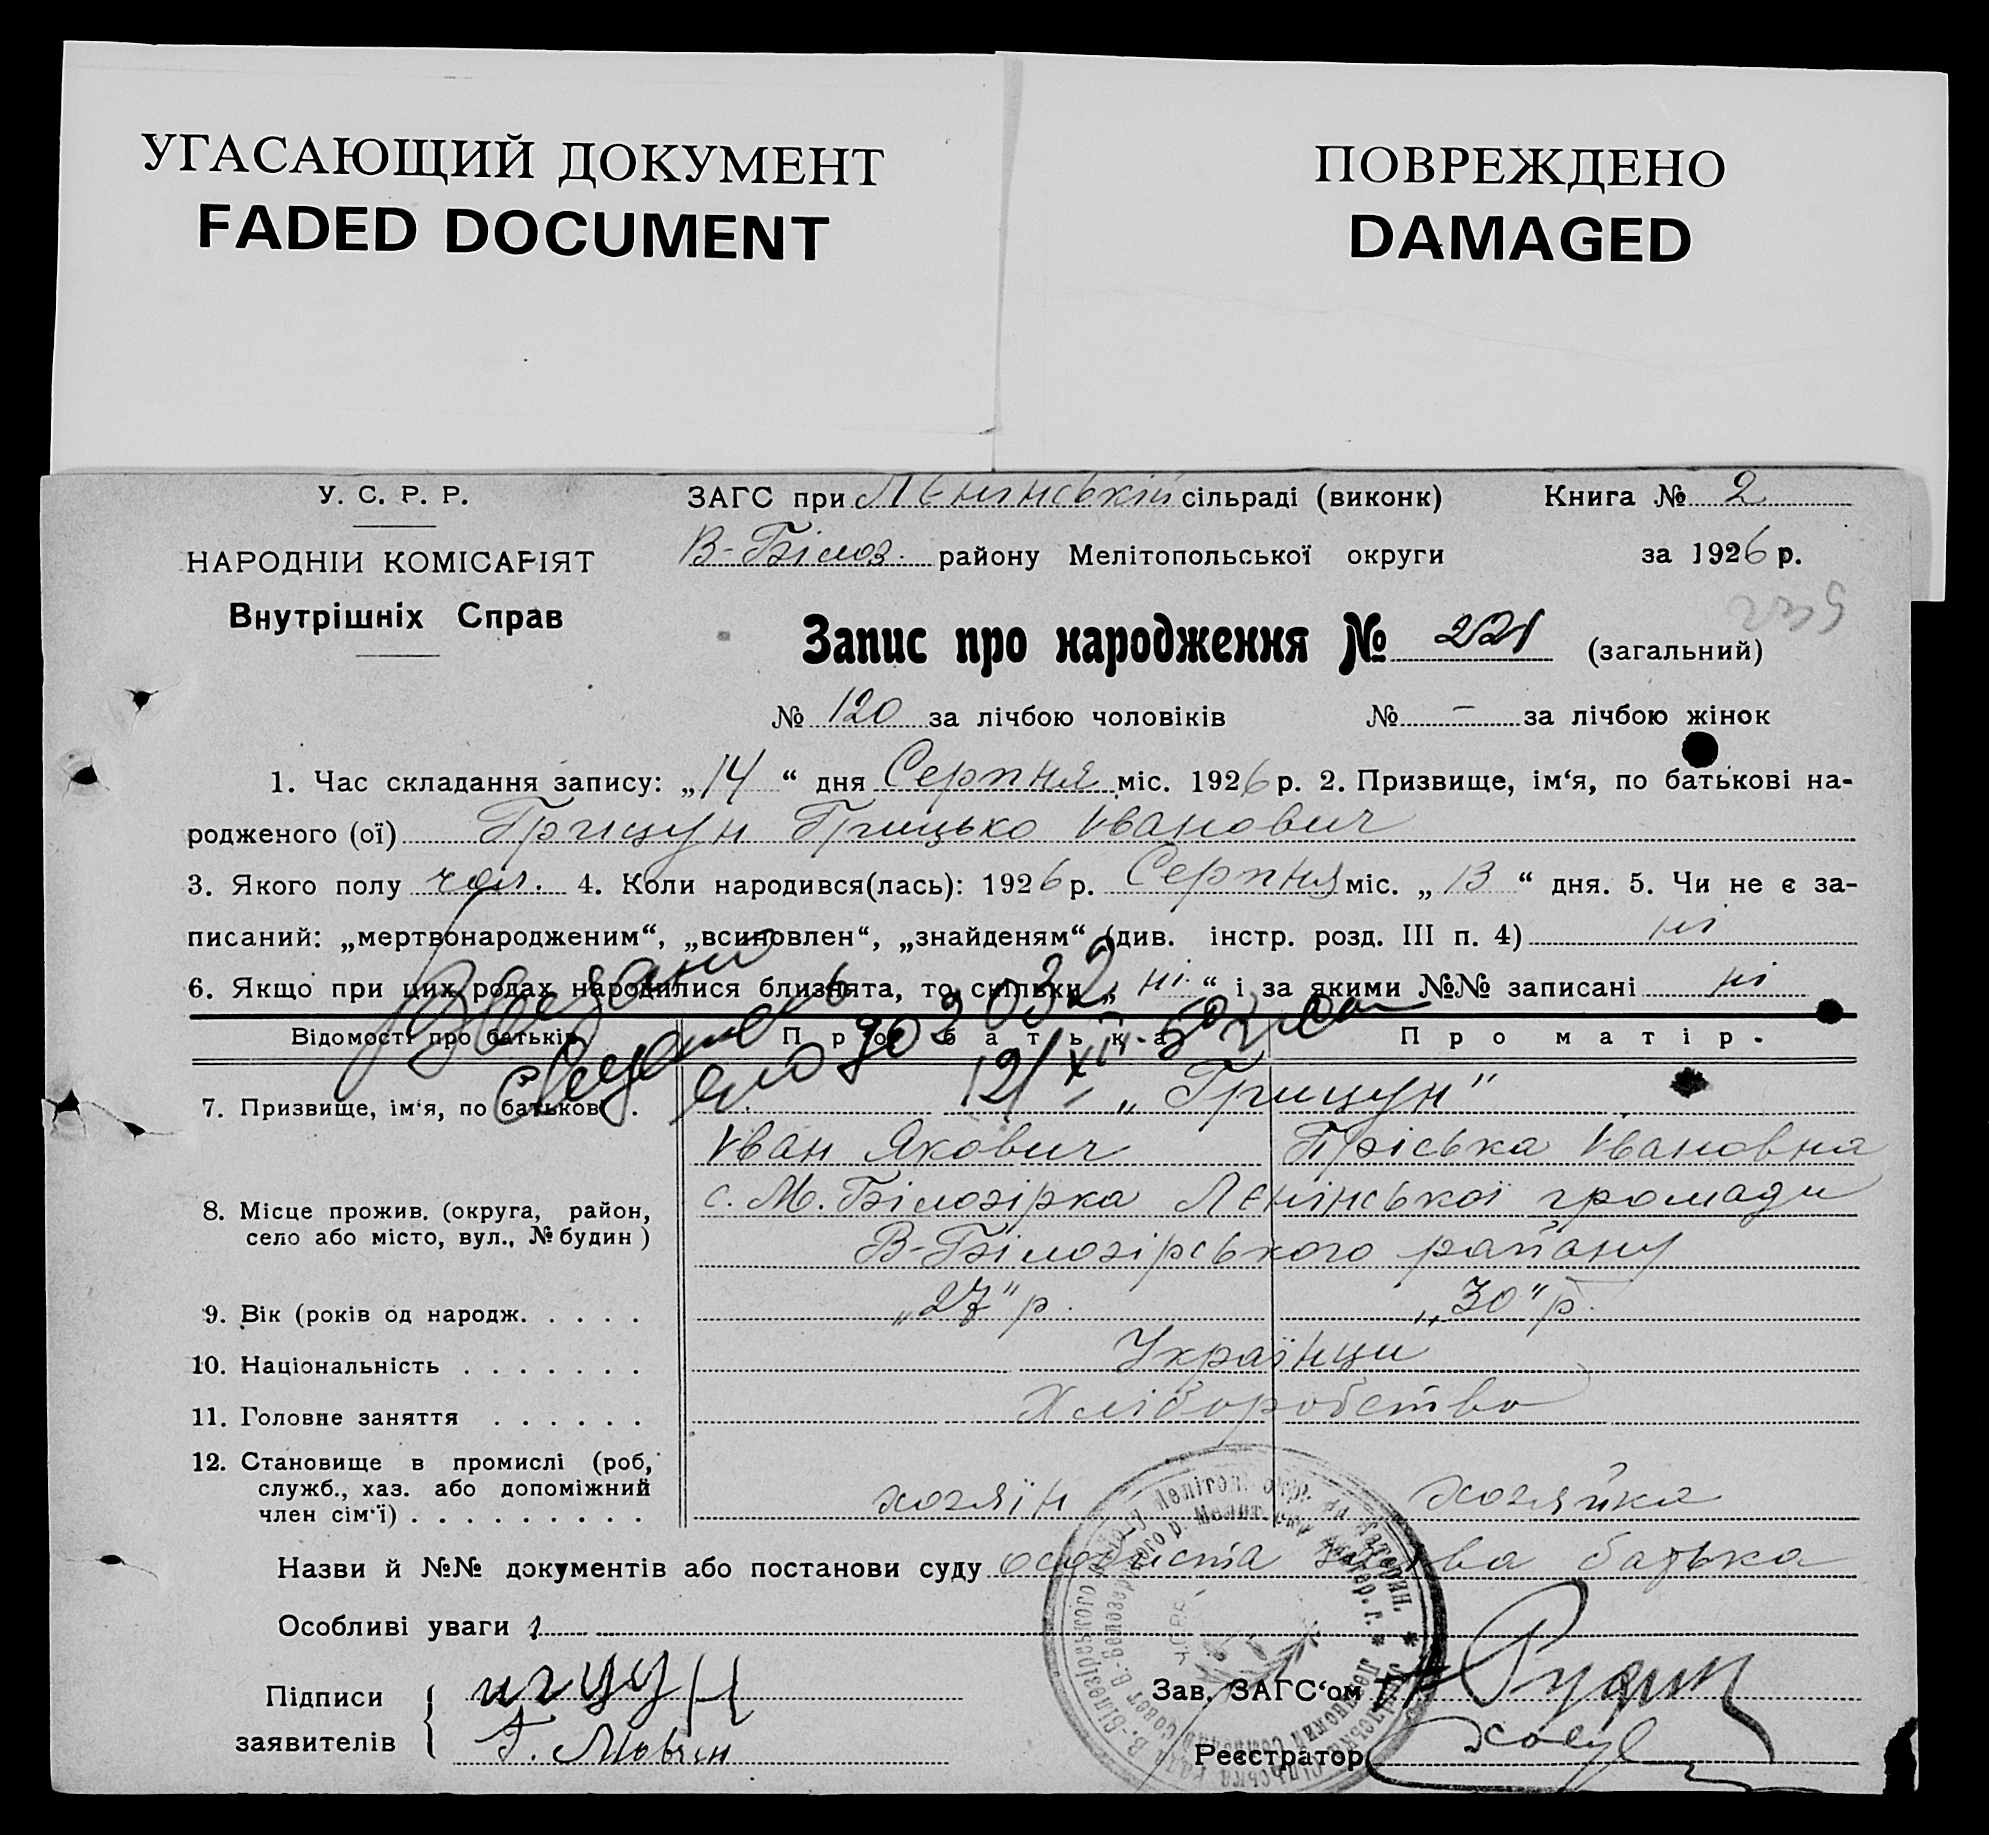 УГАСАЮЩИЙ ДОКУМЕНТ
FADED DOCUMENT
ПОВРЕЖДЕНО
DAMAGED
У. С. Р. Р.
НАРОДНІЙ КОМІСАРІЯТ
Внутрішніх Справ
ЗАГС при Ленінській сільраді (виконк) Книга № 2
В-Білоз. району Мелітопольської округи за 1926 р.
Запис про народження № 221 (загальний)
№ 120 за лічбою чоловіків № — за лічбою жінок
1. Час складання запису: „14“ дня Серпня міс. 1926 р. 2. Призвище, ім‘я, по батькові на-
родженого (ої) Грицун Грицько Іванович
3. Якого полу чол. 4. Коли народився(лась): 1926 р. Серпня міс. „13“ дня. 5. Чи не є за-
писаний: „мертвонародженим“, „всиновлен“, „знайденям“ (див. інстр. розд. III п. 4) ні
6. Якщо при цих родах народилися близнята, то скільки „ні“ і за якими №№ записані ні
Відомості про батьків Про батька Про матір.
7. Призвище, ім‘я, по батькові . „Грицун“
Іван Якович Пріська Івановна
8. Місце прожив. (округа, район, село або місто, вул., № будин) с. М. Білозірка Ленінської громади
В-Білозірського району
9. Вік (років од народж. . . . . „27“ р. „30“ р.
10. Національність . . . . . . . Українци
11. Головне заняття . . . . . . Хліборобство
12. Становище в промислі (роб,
служб., хаз. або допоміжний
член сім‘ї) . . . . . . . . . хозяїн хозяйка
Назви й №№ документів або постанови суду особиста заява батька
Особливі уваги
Підписи
заявителів
Г. Мовчан
Зав. ЗАГС‘ом
Реєстратор